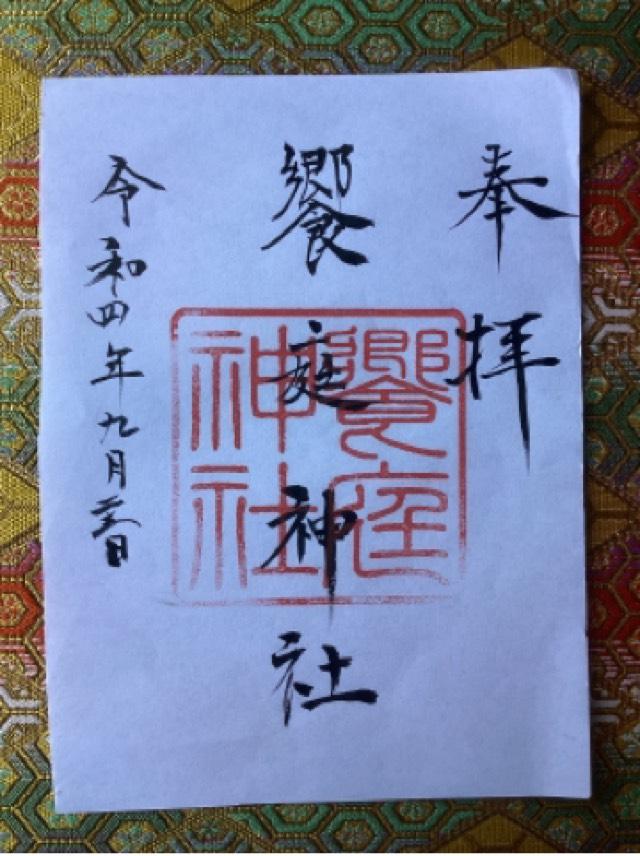 奉拝
饗庭神社
饗庭
神社
令和四年九月